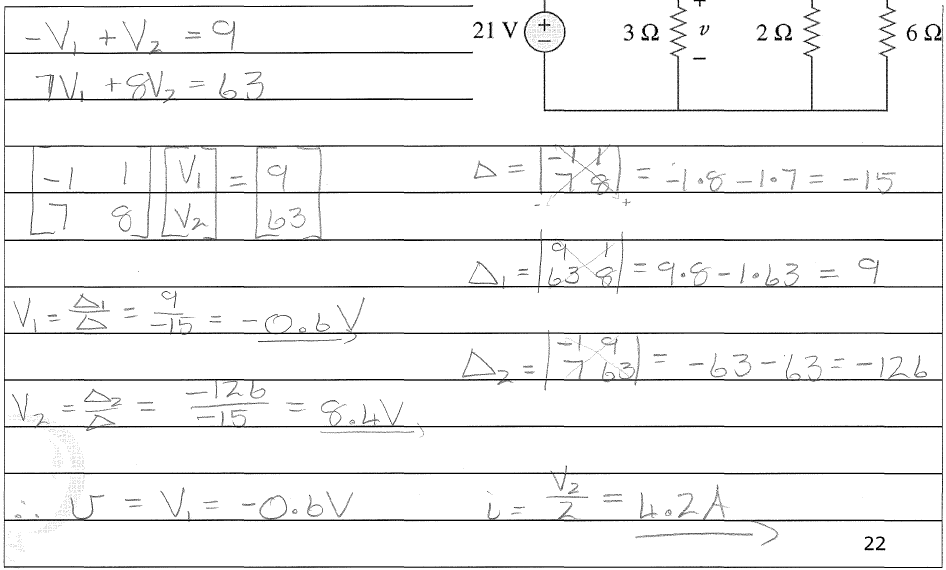 -V₁ + V₂ = 9
7V₁ + 8V₂ = 63
21 V + − 3 Ω + v − 2 Ω 6 Ω
[-1 1; 7 8] [V₁; V₂] = [9; 63]
Δ = |-1 1; 7 8| = -1·8 - 1·7 = -15
- +
Δ₁ = |9 1; 63 8| = 9·8 - 1·63 = 9
V₁ = Δ₁/Δ = 9/-15 = -0.6V
Δ₂ = |-1 9; 7 63| = -63 - 63 = -126
V₂ = Δ₂/Δ = -126/-15 = 8.4V
∴ v = V₁ = -0.6V i = V₂/2 = 4.2A
22